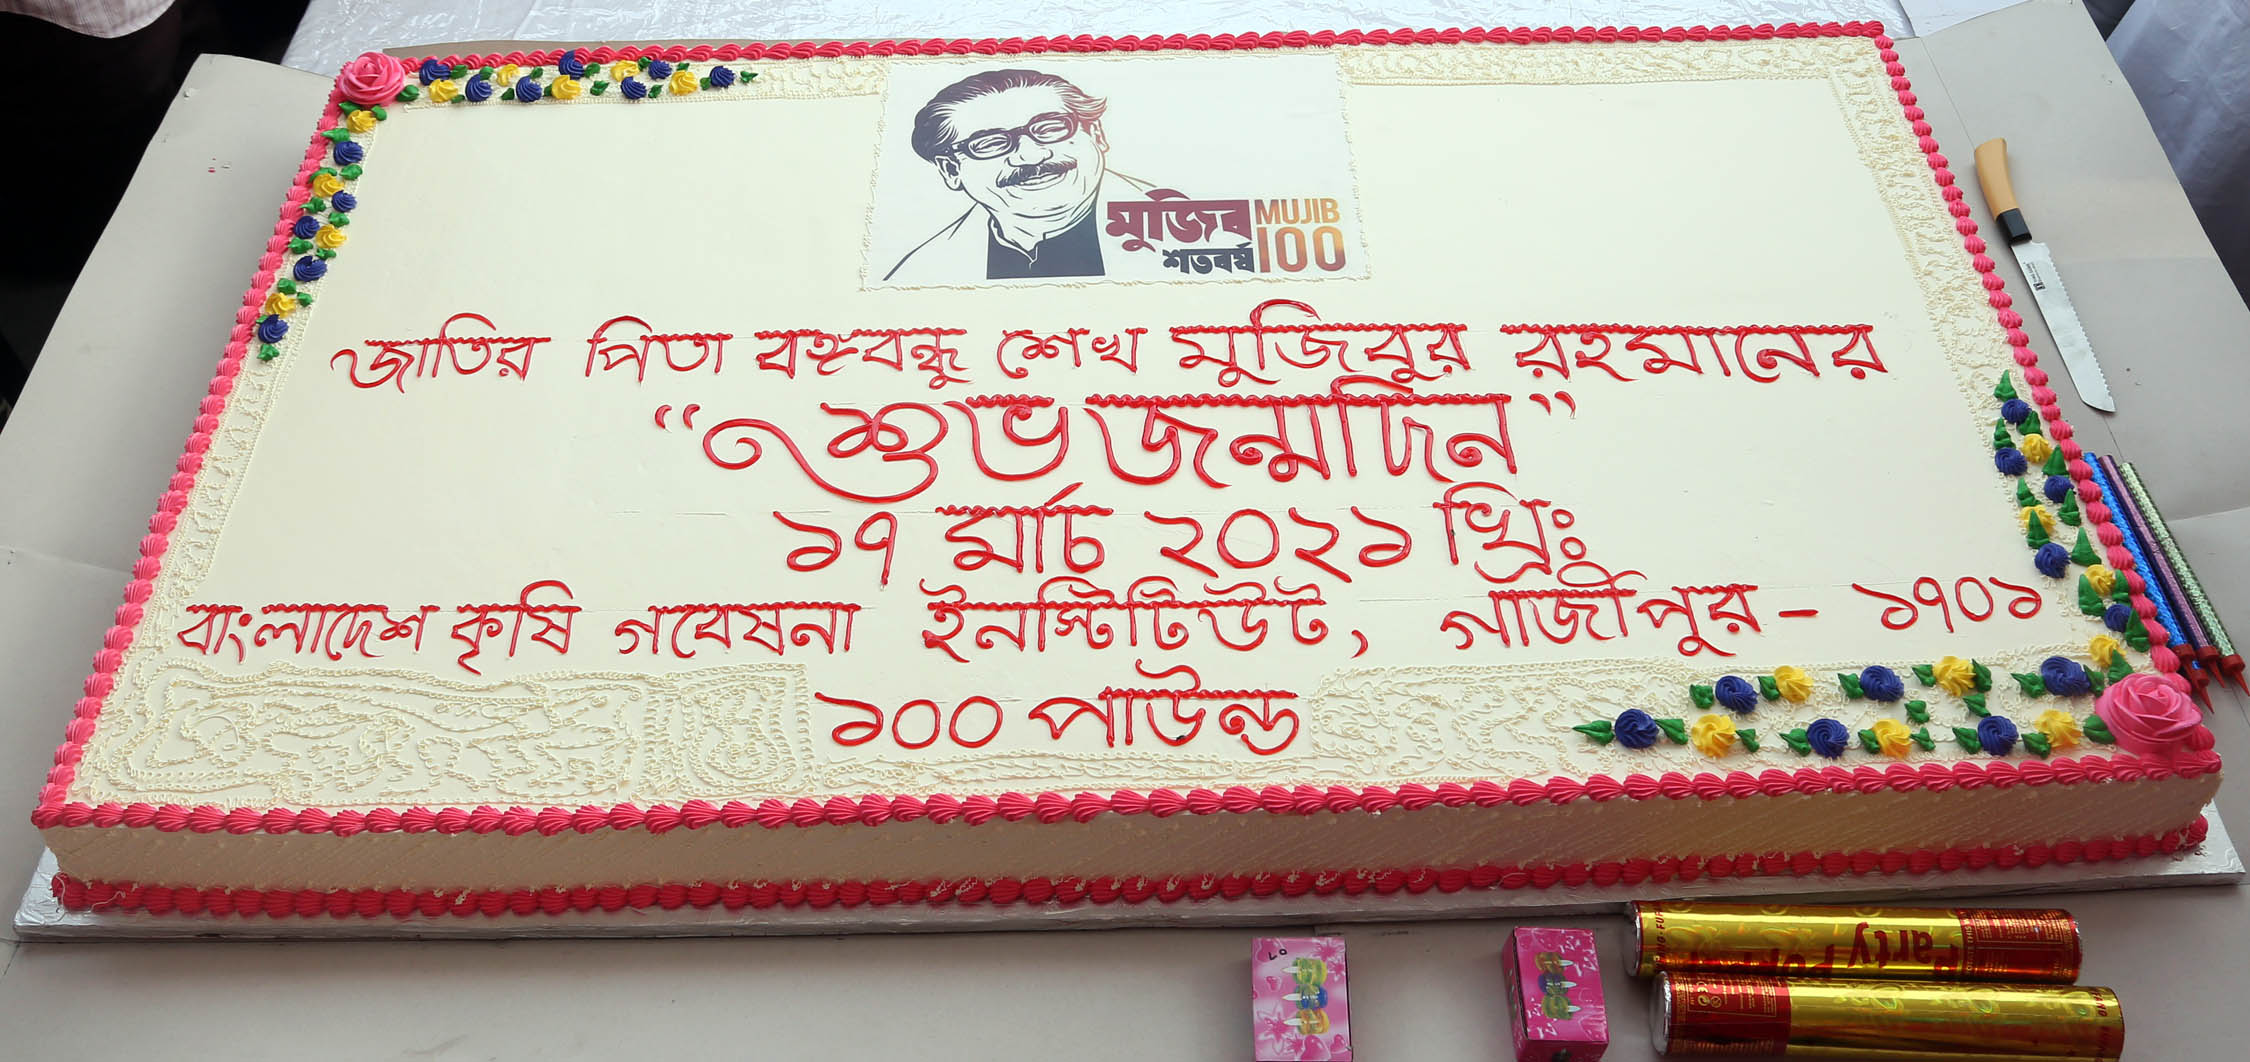 মুজিব MUJIB
শতবর্ষ 100
জাতির পিতা বঙ্গবন্ধু শেখ মুজিবুর রহমানের
“শুভ জন্মদিন”
১৭ মার্চ ২০২১ খ্রিঃ
বাংলাদেশ কৃষি গবেষনা ইনস্টিটিউট, গাজীপুর - ১৭০১
১০০ পাউন্ড
Party